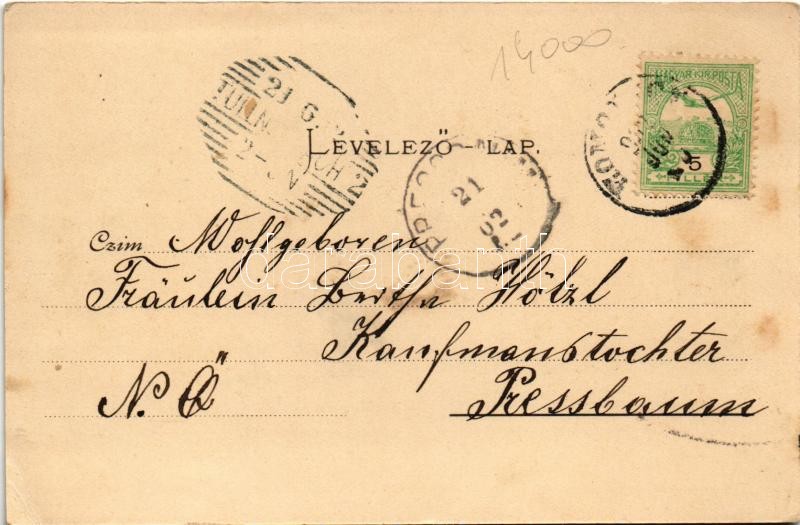 14000
MAGYAR KIR. POSTA
5
21 6
LEVELEZŐ-LAP.
21
Czim Wohlgeboren
Fräulein Bertha Hölzl
Kaufmanstochter
N. Ö Pressbaum
darabanth